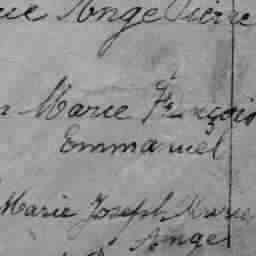 Ange Pierre
Marie François
Emmanuel
Marie Joseph Marie
Ange